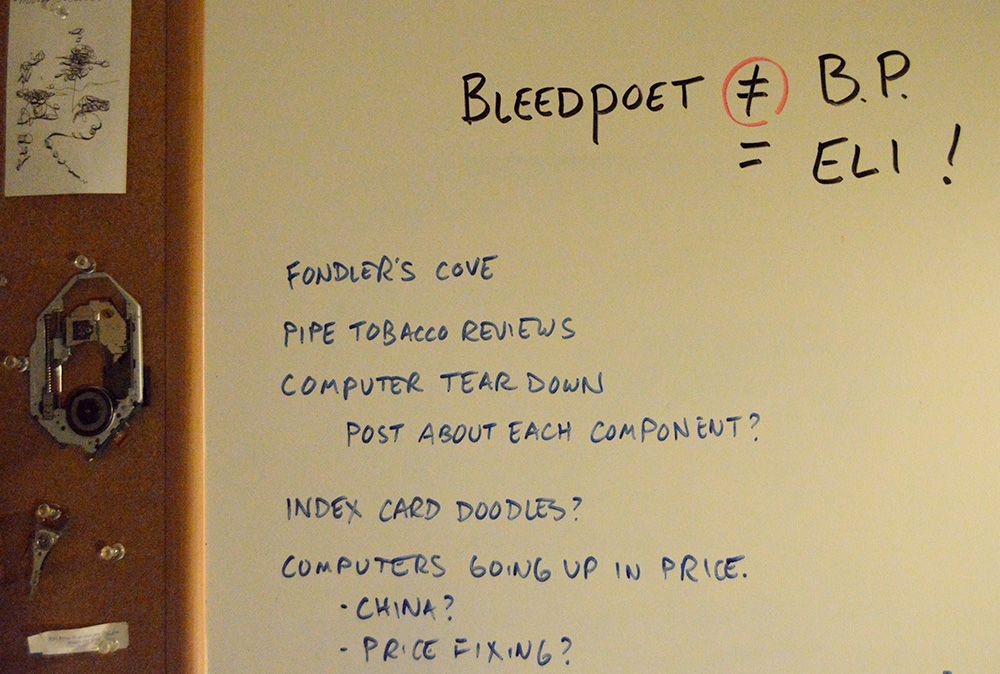 BLEEDPOET ≠ B.P.
= ELI !
FONDLER'S COVE
PIPE TOBACCO REVIEWS
COMPUTER TEAR DOWN
POST ABOUT EACH COMPONENT?
INDEX CARD DOODLES?
COMPUTERS GOING UP IN PRICE.
· CHINA?
· PRICE FIXING?